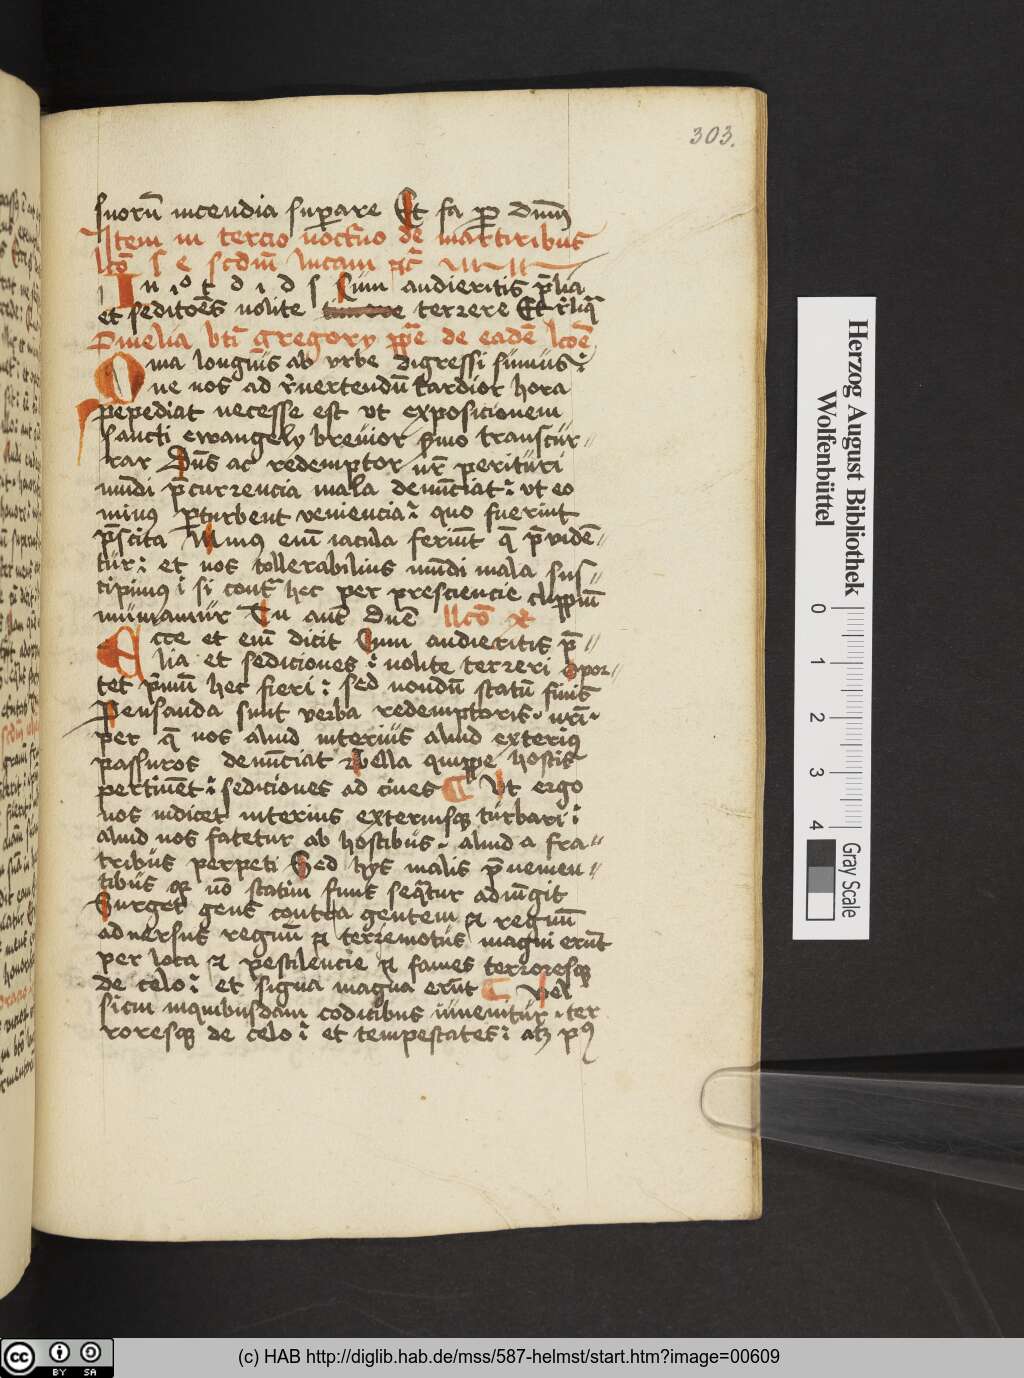 303.
suorū incendia superare Et fa p dnm̄
Item in tercio nocturno de martiribus
lcō s e scdm̄ lucam
In io t d i d s Cum audieritis p̄lia
et seditōes nolite terrere Et rl̄iqa
Omelia bti gregory ppe de eadē lcoē
Quia longius ab vrbe digressi sumus:
ne nos ad reuertendū tardior hora
prepediat necesse est vt exposicionem
sancti ewangely breuior smo transcur//
rar Dn̄s ac redemptor nr̄ perituri
mundi p̄currencia mala denūciat: vt eo
minus perturbent veniencia: quo fuerint
p̄scita Minus enī iacula feriūt q̄ p̄vidē//
tur: et nos tollerabilius mūdi mala sus//
cipimus i si contra hec per presciencie clyppeū
muniamur Tu aut dn̄e llcō
Ecce et enī dicit Cum audieritis p̄//
lia et sediciones: nolite terreri opor//
tet p̄mū hec fieri: sed nondū statū finis
Pensanda sunt verba redemptoris nr̄i
per q̄ nos aliud interius aliud exterius
passuros denūciat Bella quippe hostis
pertinēt: sediciones ad ciues Ut ergo
nos indicet interius exteriusq turbari:
aliud nos fatetur ab hostibus aliud a fra//
tribus perpeti Sed hys malis p̄uenien//
tibus qr nō statim finis seqatur adiūgit
Surget gens contra gentem et regnū
aduersus regnū et terremotus magni erūt
per loca et pestilencie et fames terroresq
de celo: et signa magna erūt Vel
sicut inquibusdam codicibus inuenitur ter
roresq de celo: et tempestates: atz pus
Herzog August Bibliothek
Wolfenbüttel
0 1 2 3 4
Gray Scale
(c) HAB http://diglib.hab.de/mss/587-helmst/start.htm?image=00609
cc BY SA